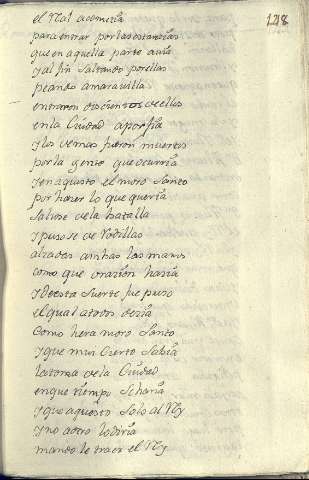 128
el Real acometia
para entrar por las estancias
que en aquella parte auia
y al fin saltando por ellas
peando a marauilla
entraron doscientos de ellos
en la Ciudad a porfia
y los demas fueron muertos
por la gente que ocurria
y en aquesto el moro Santo
por hazer lo que queria
saliose de la batalla
y pusose de Rodillas
alzadas ambas las manos
como que orazion hazia
y de esta suerte fue preso
el qual a todos dezia
Como hera moro Santo
y que muy Cierto Sabia
la toma de la Ciudad
en que tiempo Seharia
y que aquesto Solo al Rey
y no a otro lo diria
mandole traer el Rey